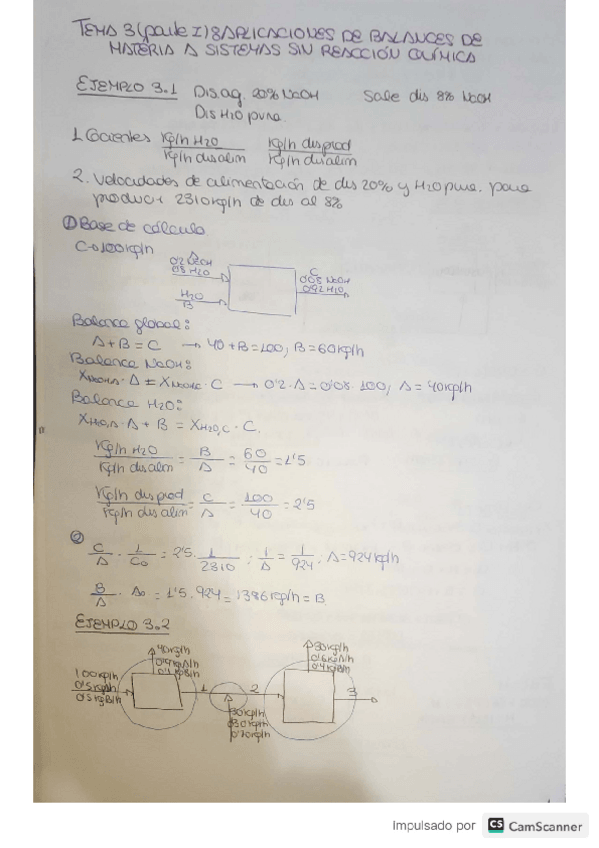 TEMA 3 (parte I): APLICACIONES DE BALANCES DE
MATERIA A SISTEMAS SIN REACCIÓN QUÍMICA
EJEMPLO 3.1 Dis aq. 20% NaOH Sale dis 8% NaOH
Dis H2O pura.
1. Cocientes Kg/h H2O / Kg/h dis alim Kg/h dis prod / Kg/h dis alim
2. Velocidades de alimentación de dis 20% y H2O pura. para
producir 2310 kg/h de dis al 8%
① Base de cálculo
C → 100 kg/h
A
0'2 NaOH
0'8 H2O
H2O
B
C
0'08 NaOH
0'92 H2O
Balance global:
A + B = C → 40 + B = 100; B = 60 kg/h
Balance NaOH:
XNaOH,A · A = XNaOH,C · C → 0'2 · A = 0'08 · 100; A = 40 kg/h
Balance H2O:
XH2O,A · A + B = XH2O,C · C.
Kg/h H2O / Kg/h dis alim = B / A = 60 / 40 = 1'5
Kg/h dis prod / Kg/h dis alim = C / A = 100 / 40 = 2'5
②
C / A · 1 / C0 = 2'5 · 1 / 2310 ; 1 / A = 1 / 924. A = 924 kg/h
B / A · A0 = 1'5 · 924 = 1386 kg/h = B
EJEMPLO 3.2
40 kg/h
0'9 kg A/h
0'1 kg B/h
30 kg/h
0'6 kg A/h
0'4 kg B/h
100 kg/h
0'5 kg B/h
1 2 3
30 kg/h
Impulsado por CS CamScanner